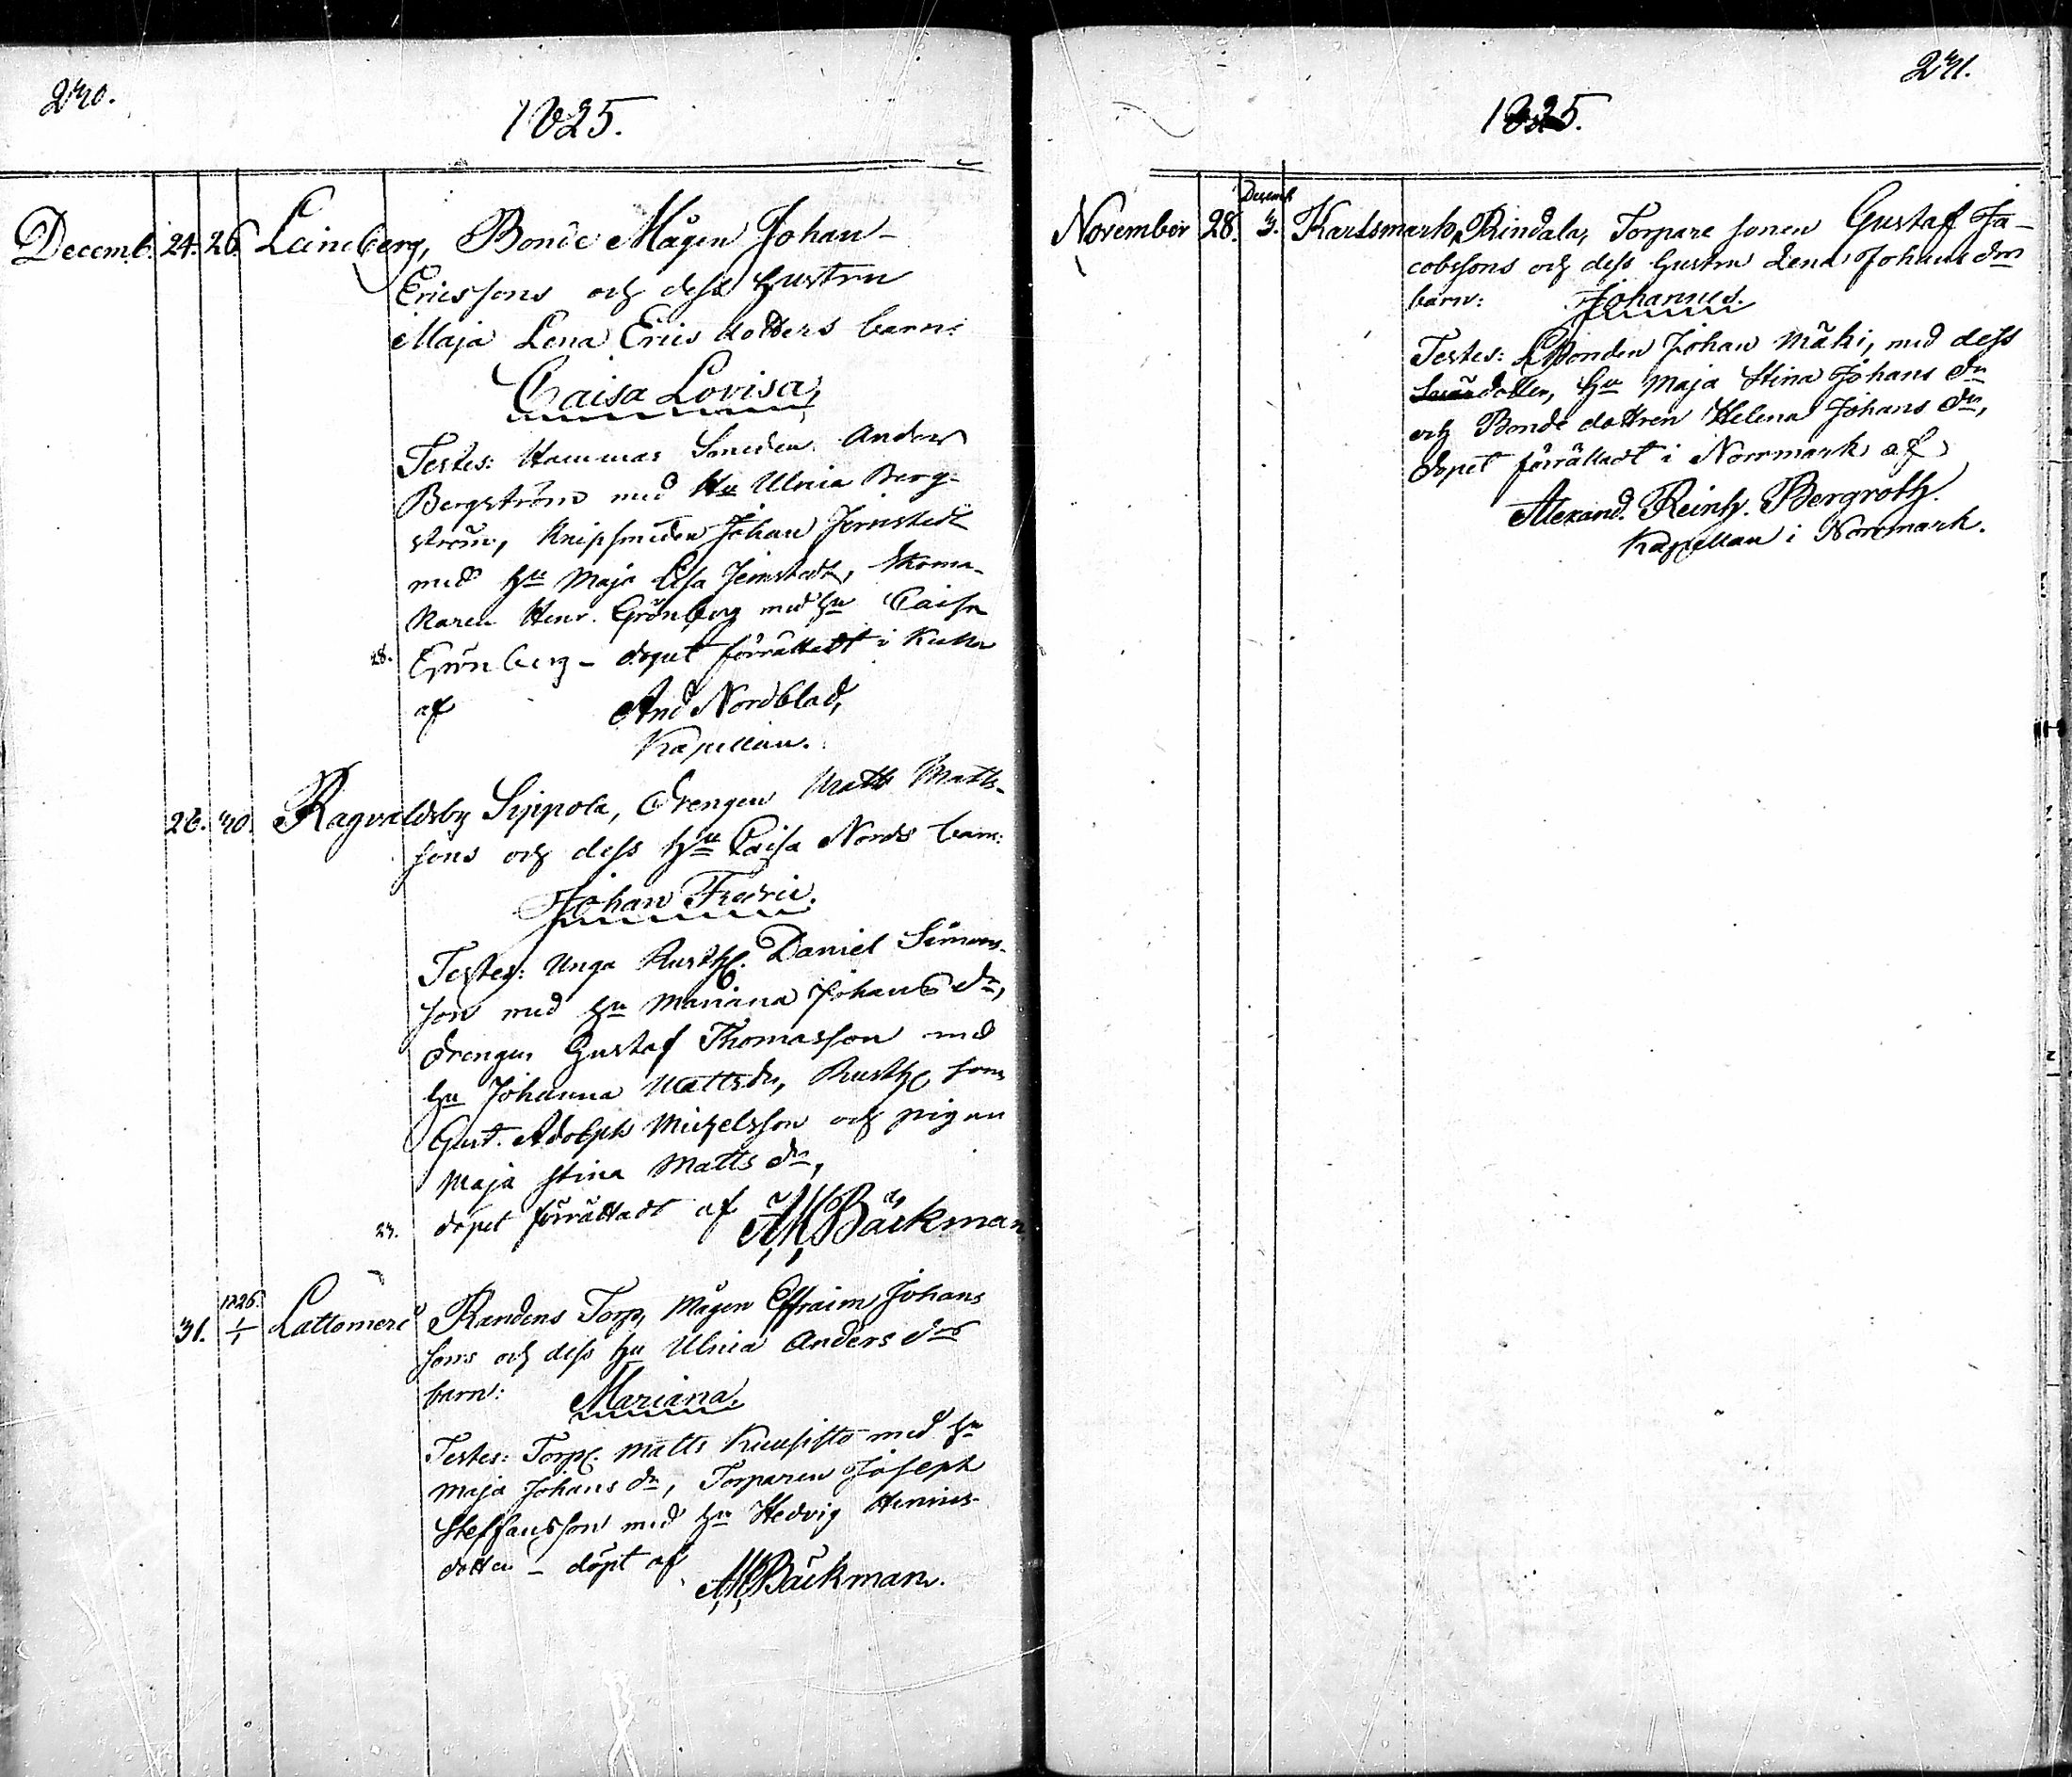 230.
1825.
Decemb. 24. 26. Leineberg, Bonde Mågen Johan
Ericssons och dess hustru
Maja Lena Erics dotters barn:
Caisa Lovisa,
Testes: Hammar Smeden Anders
Bergström med Hu Ulrica Berg-
ström, Knipsmeden Johan Jernstedt
med hu Maja Lisa Jernstedt, Skoma-
karen Henr. Grönberg med hu Caisa
28. Grönberg – dopet förrättadt i Kulla
af And Nordblad,
Kapellan.
26. 30. Ragvaldsby Sippola, Drengen Matts Matts-
sons och dess hu Caisa Nords barn:
Johan Fredric.
Testes: Unga Rusth. Daniel Simons-
son med hu Mariana Johans dr,
drengen Gustaf Thomasson med
hu Johanna Mattsdr, Rusth sonen
Gust. Adolph Michelsson och pigan
Maja Stina Matts dr,
23. dopet förrättadt af AMBäckman
31. 1826. 1/1 Lattomeri Randens Torp, Mågen Effraim Johans
sons och dess hu Ulrica Anders drs
barn: Mariana,
Testes: Torp. Matts Kuusisto med hu
Maja Johans dr, Torparen Joseph
Steffansson med hu Hedvig Henrics-
dotter – döpt af AMBäckman.
231.
1825.
November 28. Decemb. 3. Karlsmark, Rindala, Torpare sonen Gustaf Ja-
cobssons och dess hustru Lena Johans drs
barn: Johannes.
Testes: Bonden Johan Mäki, med dess
dotter, hu Maja Stina Johans dr
och Bonde dottren Helena Johans dr,
dopet förrättadt i Norrmark af
Alexand. Reinh. Bergroth.
Kapellan i Norrmark.